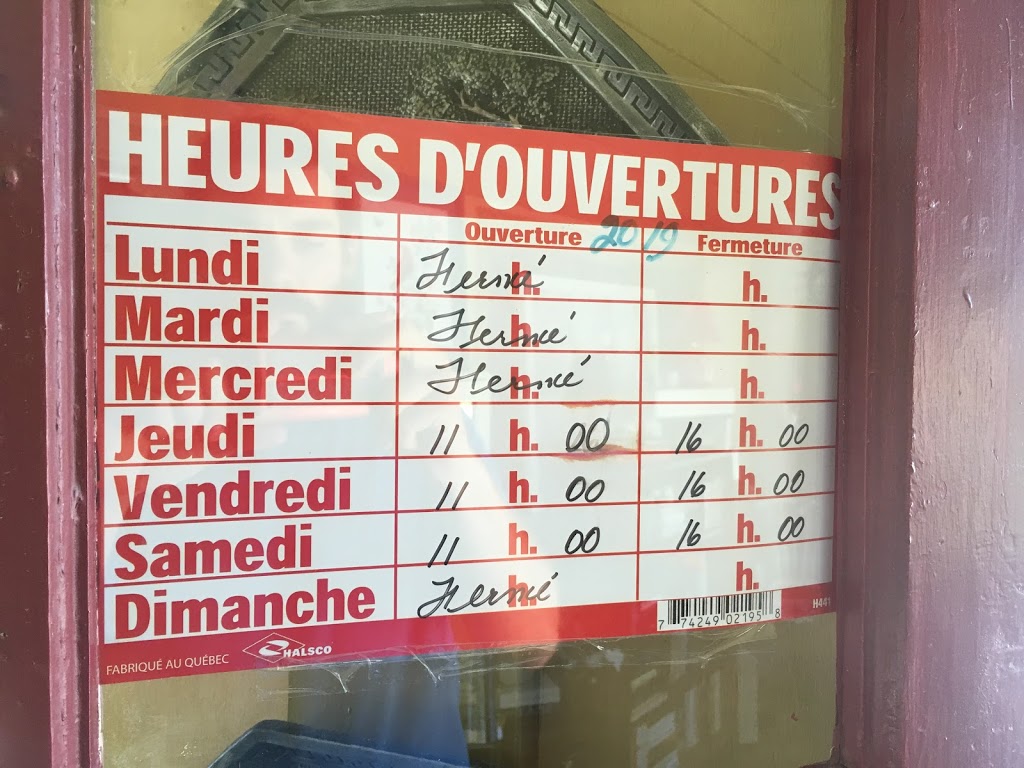 HEURES D'OUVERTURES
Ouverture 2019 Fermeture
Lundi Fermé h. h.
Mardi Fermé h. h.
Mercredi Fermé h. h.
Jeudi 11 h. 00 16 h. 00
Vendredi 11 h. 00 16 h. 00
Samedi 11 h. 00 16 h. 00
Dimanche Fermé h. h.
FABRIQUÉ AU QUÉBEC HALSCO 7 74249 02195 8 H441